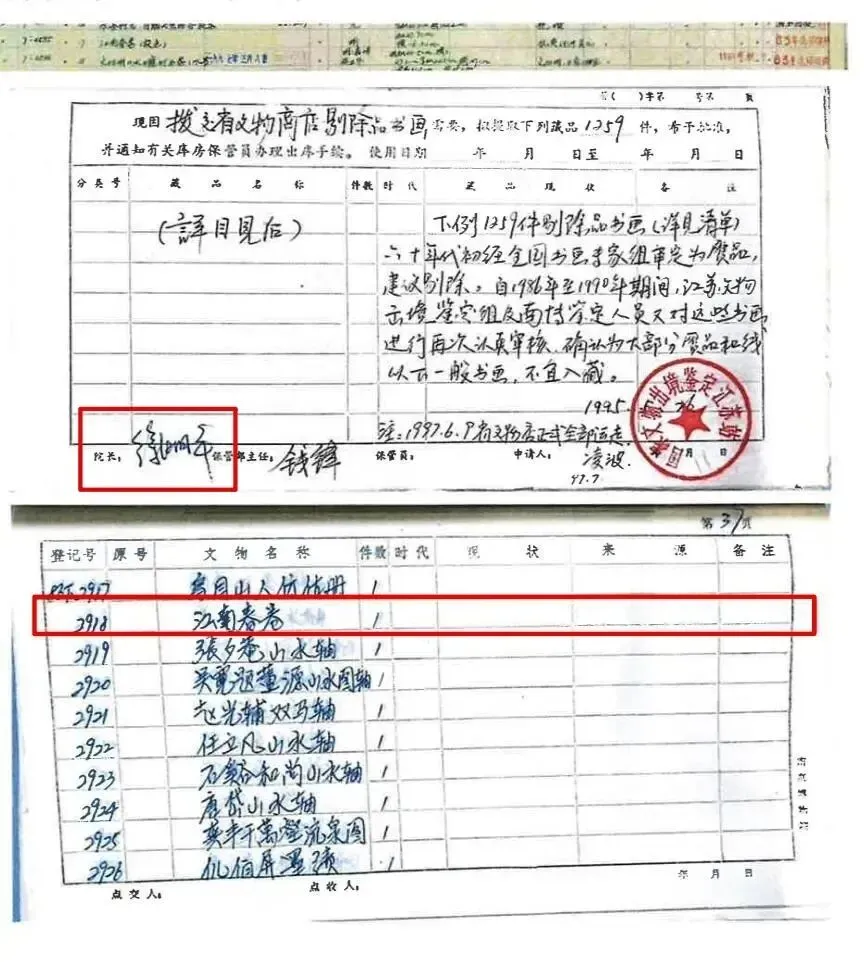 江南春卷
字第 号第 页
现因 拨交省文物商店剔除品书画 需要，拟提取下列藏品1259件，希予批准，
并通知有关库房保管员办理出库手续。 使用日期 年 月 日至 年 月 日
分类号 藏品名称 件数 时代 藏品现状 备注
(详目见后)
下列1259件剔除品书画(详见清单)
六十年代初经全国书画专家组审定为赝品，
建议剔除。自1986年至1990年期间，江苏文物
出境鉴定组及南博鉴定人员又对这些书画
进行再次认真审核，确认为大部分赝品和线
以下一般书画，不宜入藏。
1995. 26
注：1997.6.9省文物店正式全部运走
院长： 徐湖平 保管部主任： 钱锋 保管员： 申请人： 凌波
97.7
国家文物出境鉴定江苏站
第37页
登记号 原号 文物名称 件数 时代 现状 来源 备注
2917 1
2918 江南春卷 1
2919 张夕庵山水轴 1
2920 吴宽题董源山水图轴 1
2921 赵光辅双马轴 1
2922 任立凡山水轴 1
2923 石溪和尚山水轴 1
2924 唐岱山水轴 1
2925 流泉图 1
2926 1
年 月 日
点交人： 点收人：